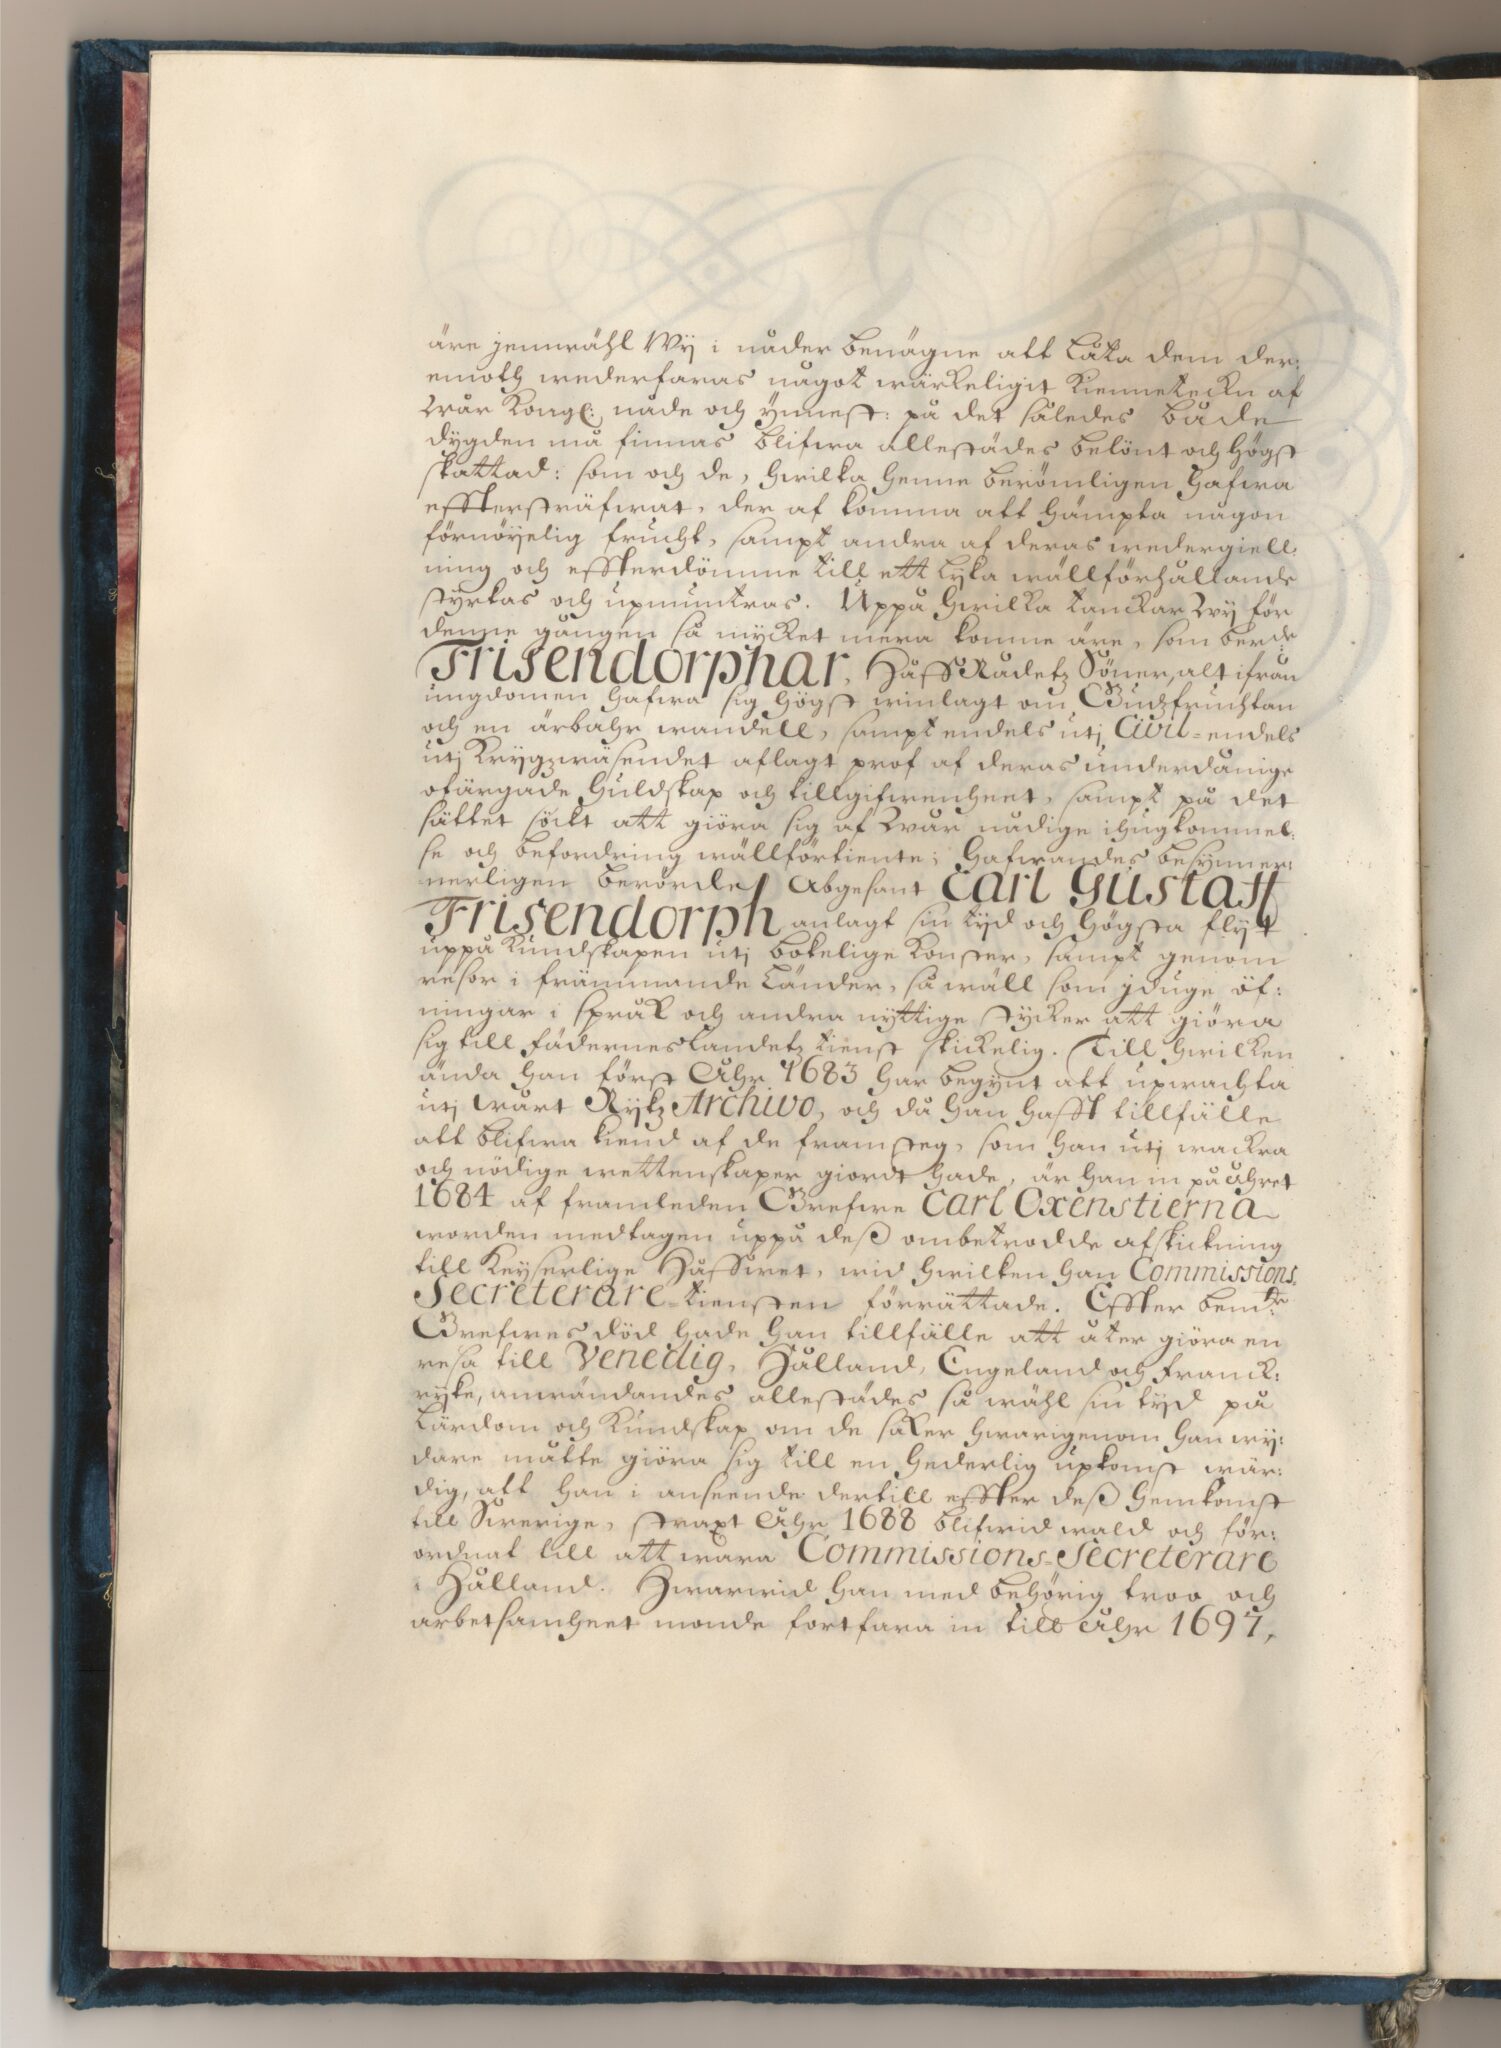 äre jemwähl Wij i nåder benägne att låta dem der:
emoth wederfaras något wärkeligit kiennetecken af
Wår Kongl: nåde och ynnest: på det således både
dygden må finnas blifwa allestädes belönt och högst
skattad: som och de, hwilka henne berömligen hafwa
effterstrafwat, der af komma att hämpta någon
förnöyelig frucht, sampt andra af deras wedergiell:
ning och effterdömme till ett lyka wällförhållande
styrkas och upmuntras. Uppå hwilka tanckar Wij för
denne gången så mycket mera komne äre, som berde
Frisendorphar, HåffRådetz Söner, alt ifrån
ungdomen hafwa sig högst winlagt om Gudzfruchtan
och en ärbahr wandell, sampt endels utj Civil-endels
utj Krygzwäsendet aflagt prof af deras underdånige
ofärgade huldskap och tillgifwenheet, sampt på det
sättet sökt att giöra sig af Wår nådige ihugkommel:
se och befordring wällförtiente; Hafwandes besynner:
nerligen berörde Abgesant Carl Gustaff
Frisendorph anlagt sin tyd och högsta flyt
uppå kundskapen utj bokelige konster, sampt genom
resor i främmande Länder, så wäll som jduge öf:
ningar i språk och andra nyttige stycker att giöra
sig till fäderneslandetz tienst skickelig. Till hwilken
ända han först Åhr 1683 har begynt att upwachta
utj Wårt Rykz Archivo, och då han hafft tillfälle
att blifwa kiend af de framsteg, som han utj wackra
och nödige wettenskaper giordt hade, är han in på åhret
1684 af framleden Grefwe Carl Oxenstierna
worden medtagen uppå deß ombetrodde afskickning
till Keyserlige Håffwet, wid hwilken han Commissions-
Secreterare-tiensten förrättade. Effter bemte
Grefwes död hade han tillfälle att åter giöra en
resa till Venedig, Hålland, Engeland och Franck:
ryke, anwändandes allestädes så wähl sin tyd på
Lärdom och kundskap om de saker hwarigenom han wy:
dare måtte giöra sig till en hederlig upkomst wär:
dig, att han i anseende dertill effter deß hemkomst
till Swerige, straxt Åhr 1688 blifwid wald och för:
ordnat till att wara Commissions-Secreterare
i Hålland. Hwarwid han med behörig troo och
arbetsamheet monde fortfara in till åhr 1697,